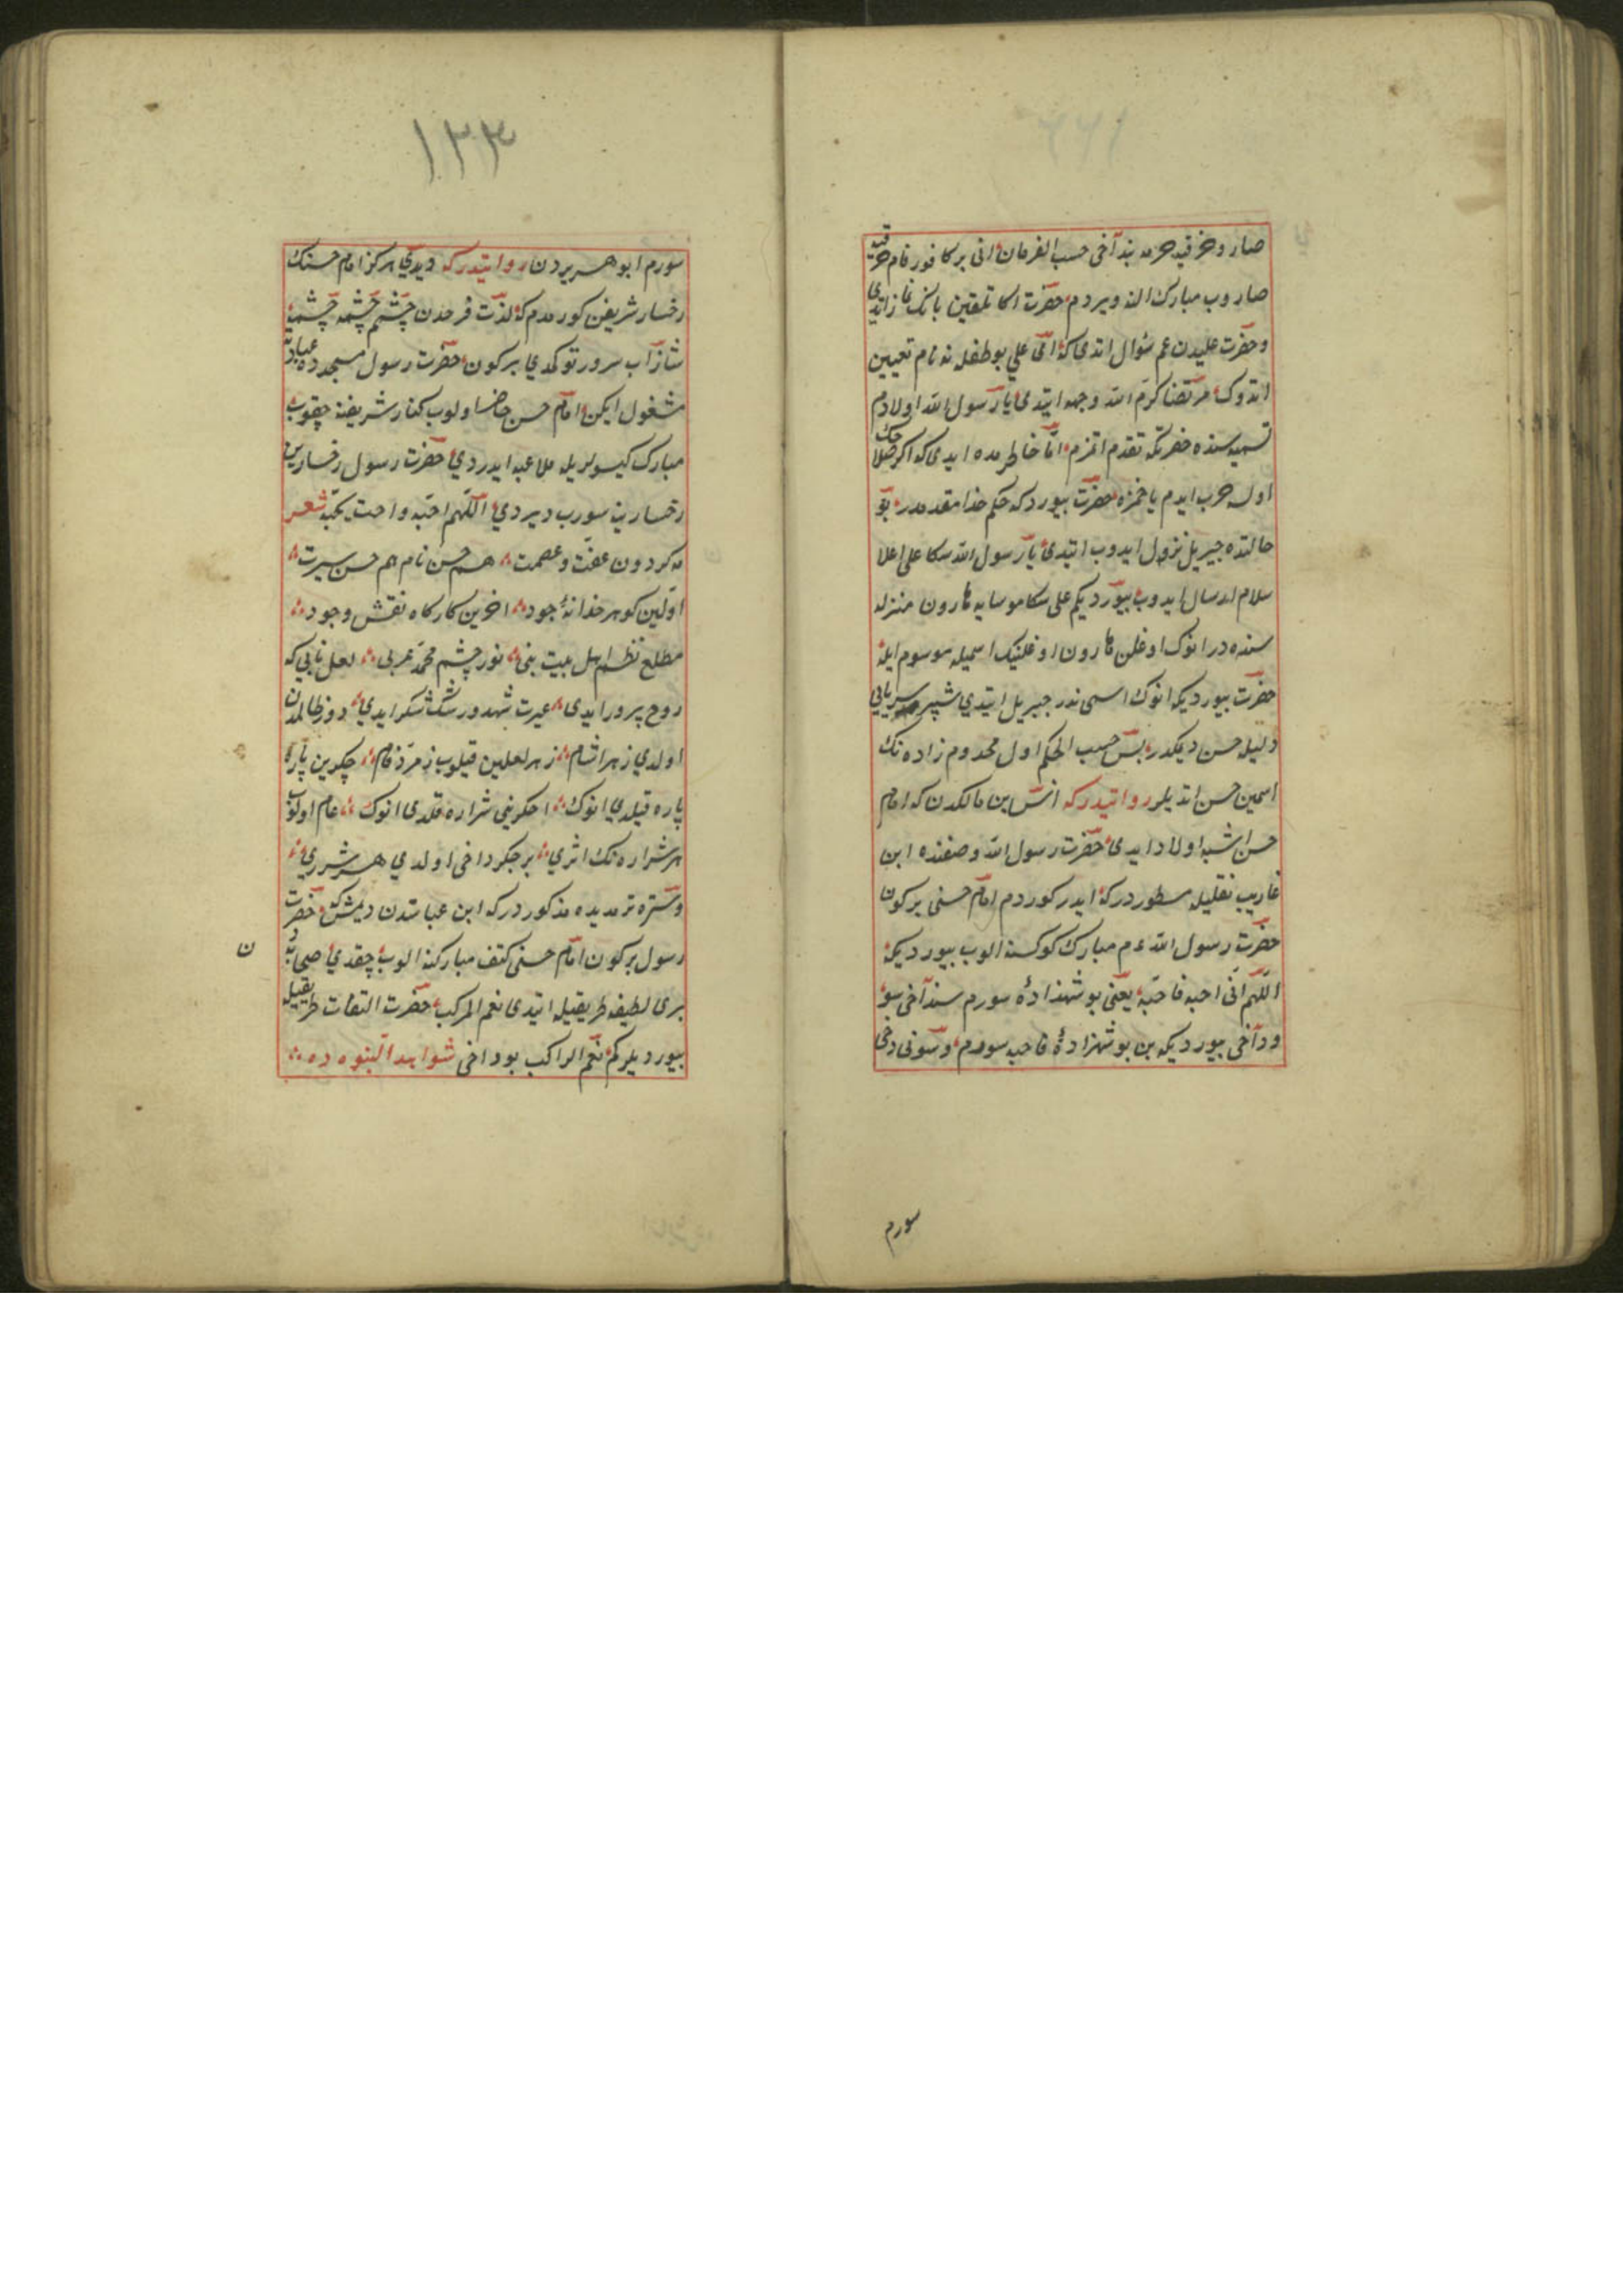 صارو خرقیه خرمه بند آخی حسب الفرمان انی بر کافور فام خرقیه
صاروب مبارك الینه ویردم حضرت اکا تلقین بانك نماز ایتدی
وحضرت علیدن عم سٶال ایتدی که ای علی بو طفله نه نام تعیین
ایتدوك مرتضا کرم الله وجهه ایتدی یا رسول الله اولادم
تسمیه سنده حضرتکه تقدم ایتمزم اما خاطرمده ایدی که اکر صلاحك
اوله حرب ایدم یا حمزه حضرت بیوردکه حکم خدا مقدمدر بو
حالتده جبریل نزول ایدوب ایتدی یا رسول الله سکا علی اعلا
سلام ارسال ایدوب بیوردیکم علی سکا موسایه هارون منزله
سنده در انوك اوغلن هارون اوغلینك اسمیله موسوم ایله
حضرت بیوردیکه انوك اسمی ندر جبریل ایتدی شپیر سریانی
دلیله حسن دیمکدر بس حسب الحکم اول مخدوم زاده نك
اسمین حسن ایتدیلر روایتدرکه انس بن مالکدن که امام
حسن اشبه اولاد ایدی حضرت رسول الله وصفنده ابن
غاریب نقلیله مسطوردرکه ایدر کوردم امام حسنی برکون
حضرت رسول الله عم مبارك کوکسنه الوب بیوردیکه
اللهم انی احبه فاحبه یعنی بو شهزاده سورم سند آخی سو
ودآخی بیوردیکه بن بو شهزاده فاحبه سورم وسونی دخی
سورم
١٣٣
سورم ابو هریردن روایتدرکه دیدی هرکز امام حسنك
رخسار شریفن کورمدم که لذت فرحدن چشم چشمه چشمه
نثار آب سرور توکمدی برکون حضرت رسول مسجدده عبادته
مشغول ایکن امام حسن حاضر اولوب کنار شریفنه چقوب
مبارك کیسولریله ملاعبه ایدردی حضرت رسول رخسارین
رخسارینه سورب دیردی اللهم احبه واحب یحبه شعر
مه کردون عفت وعصمت هم حسن نام هم حسن سیرت
اولین کوهر خزانهٔ جود اخرین کارکاه نقش وجود
مطلع نظم اهل بیت نبی نور چشم محمد عربی لعل نابی که
روح پرور ایدی غیرت شهد ورشك شکر ایدی دوز ظالمدن
اولدی زهر اشام زهر لعلین قیلوب زمرد فام جکرین پاره
پاره قیلدی انوك احکرینی شراره قلدی انوك عام اولوب
هر شراره نك اثری بر جکر داخی اولدی هر شرری
وستره ترمدیده مذکوردرکه ابن عباسدن دیمش که حضرت
رسول برکون امام حسنی کتف مبارکنه الوب چقدی صحابه دن
بری لطیفه طریقیله ایتدی نعم المرکب حضرت التفات طریقیله
بیوردیلرکم نعم الراکب بوداخی شواهد النبوه ده